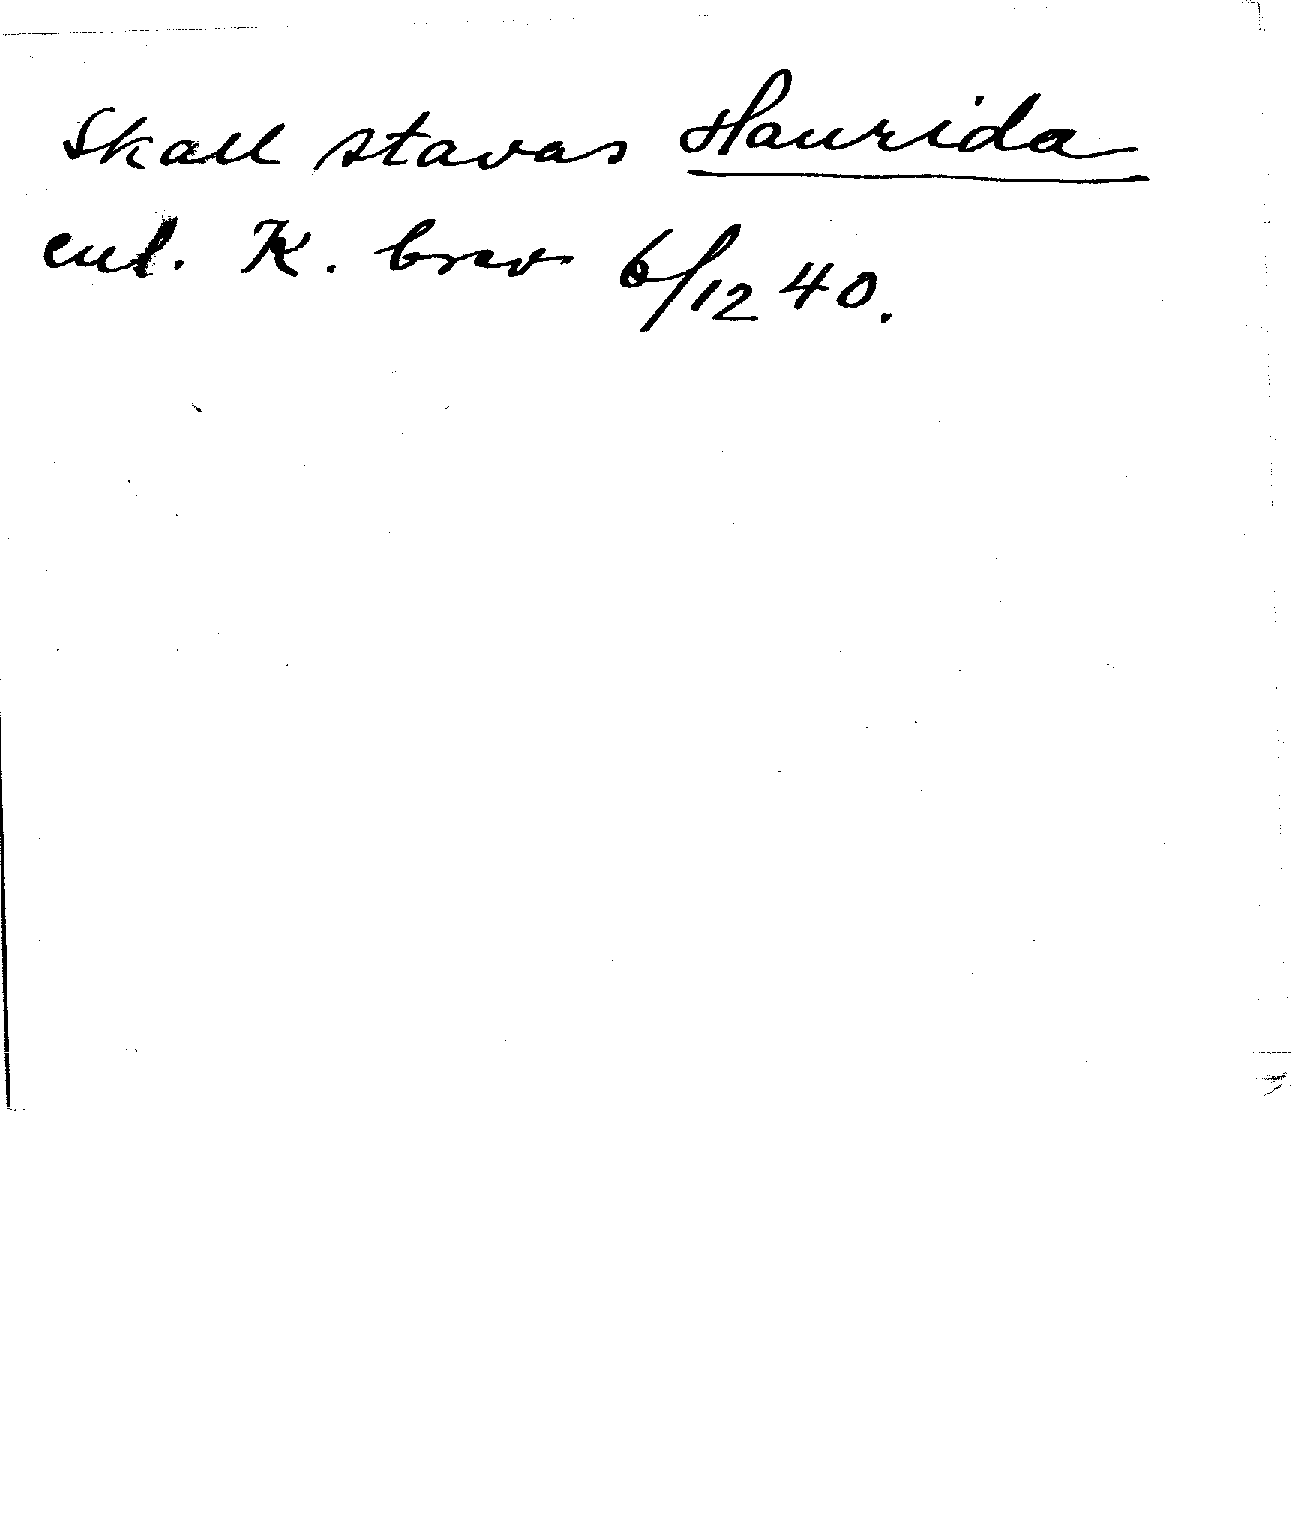 Skall stavas Haurida
enl. K. brev 6/12 40.